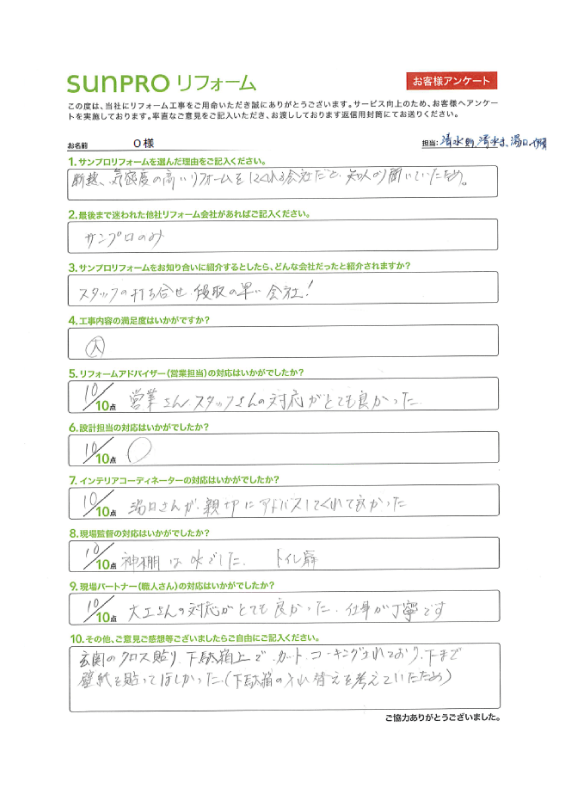 sunPRO リフォーム
お客様アンケート
この度は、当社にリフォーム工事をご用命いただき誠にありがとうございます。サービス向上のため、お客様へアンケー
トを実施しております。率直なご意見をご記入いただき、お渡ししております返信用封筒にてお送りください。
お名前 O様 担当: 清水 清水 湯口
1.サンプロリフォームを選んだ理由をご記入ください。
断熱、気密度の高いリフォームをしてくれる会社だと、知人より聞いていたため。
2.最後まで迷われた他社リフォーム会社があればご記入ください。
サンプロのみ
3.サンプロリフォームをお知り合いに紹介するとしたら、どんな会社だったと紹介されますか?
スタッフの打ち合せ、段取の早い会社!
4.工事内容の満足度はいかがですか?
大
5.リフォームアドバイザー(営業担当)の対応はいかがでしたか?
10/10点 営業さんスタッフさんの対応がとても良かった
6.設計担当の対応はいかがでしたか?
10/10点 〇
7.インテリアコーディネーターの対応はいかがでしたか?
10/10点 湯口さんが、親切にアドバスしてくれて良かった
8.現場監督の対応はいかがでしたか?
10/10点 神棚は でした。 トイレ
9.現場パートナー(職人さん)の対応はいかがでしたか?
10/10点 大工さんの対応がとても良かった、仕事が丁寧です
10.その他、ご意見ご感想等ございましたらご自由にご記入ください。
玄関のクロス貼り、下駄箱上で、カット、コーキングされており、下まで
壁紙を貼ってほしかった。(下駄箱の入れ替えを考えていたため)
ご協力ありがとうございました。